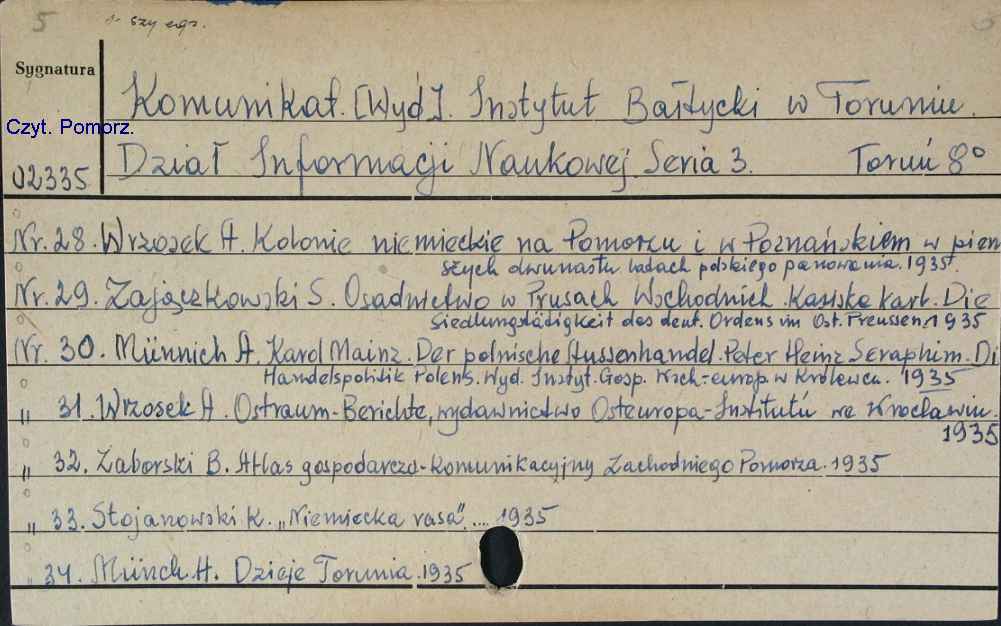 5 1 szy egz.
Sygnatura
Komunikat. [Wyd]. Instytut Bałtycki w Toruniu.
Czyt. Pomorz.
Dział Informacji Naukowej. Seria 3. Toruń 8°
02335
Nr. 28. Wrzosek A. Kolonie niemieckie na Pomorzu i w Poznańskiem w pierw
szych dwunastu latach polskiego panowania. 1935.
Nr. 29. Zajączkowski S. Osadnictwo w Prusach Wschodnich. Kasiske Karl. Die
Siedlungstädigkeit des deut. Ordens im Ost. Preussen, 1935
Nr. 30. Münnich A. Karol Mainz. Der polnische Aussenhandel. Peter Heinz Seraphim. Di
Handelspolitik Polens. Wyd. Instyt. Gosp. Wsch.-europ. w Królewcu. 1935
„ 31. Wrzosek A. Ostraum-Berichte, wydawnictwo Osteuropa-Institutu we Wrocławiu.
1935
„ 32. Zaborski B. Atlas gospodarczo-komunikacyjny Zachodniego Pomorza. 1935
„ 33. Stojanowski K. „Niemiecka rasa”.... 1935
„ 34. Münch H. Dzieje Torunia. 1935